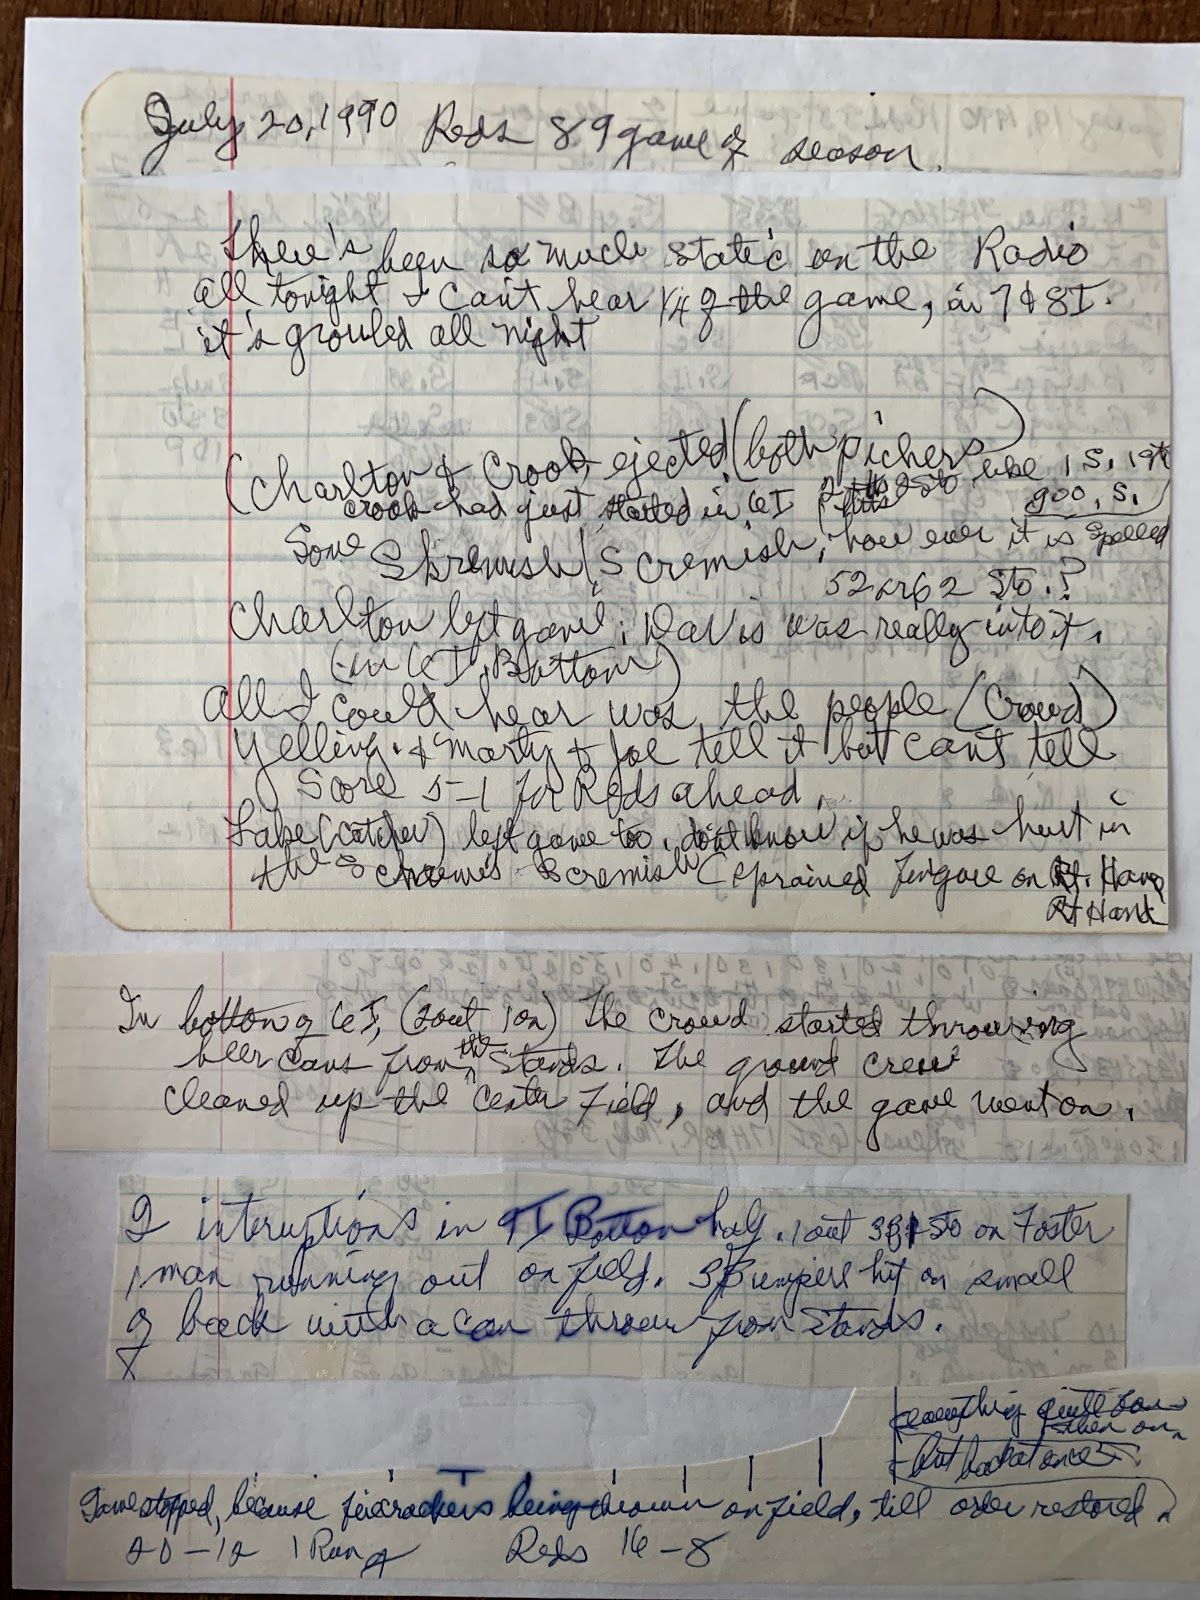 July 20, 1990 Reds 89 game of season.
There's been so much static on the Radio
all tonight I can't hear 1/4 of the game, in 7 & 8 I.
it's grouled all night
(Charlton & Crook ejected (both pichers)
Crook had just started in 6 I like 1 S. 1st
goo, S.
Some Skremish / Scremish, how ever it is spelled
52 or 62 Sto.?
Charlton left game; Davis was really into it.
(in 6 I, Bottom)
all I could hear was the people (Crowd)
yelling. & Marty & Joe tell it but can't tell
Score 5-1 for Reds ahead.
Lake (catcher) left game too, don't know if he was hurt in
the Scremish (sprained fingure on Rt. Hand
Rt Hand
In bottom of 6 I, (2 out, 1 on) The crowd started throwing
beer cans from the stands. The ground crew
cleaned up the center field, and the game went on.
2 interuptions in 9 I Bottom half. 1 out 3B 1 Sto on Foster
1 man running out on field. 3B umpire hit on small
of back with a can throw from stands.
everything quite
then on,
but back at once
Game stopped, because firecrackers being thrown on field, till order restored.
20-12 1 Run Reds 16-8